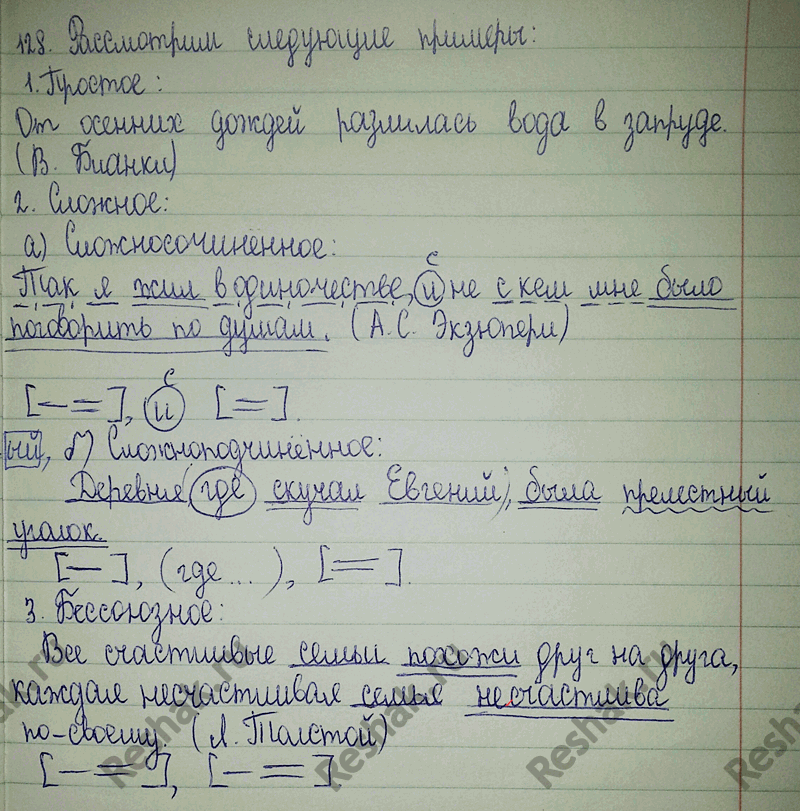 128. Рассмотрим следующие примеры:
1. Простое:
От осенних дождей разлилась вода в запруде.
(В. Бианки)
2. Сложное:
а) Сложносочинённое:
с
Так я жил в одиночестве, и не с кем мне было
поговорить по душам. (А.С. Экзюпери)
с
[— =], и [=].
ый, б) Сложноподчинённое:
Деревня, (где скучал Евгений), была прелестный
уголок.
[—], (где ...), [=].
3. Бессоюзное:
Все счастливые семьи похожи друг на друга,
каждая несчастливая семья несчастлива
по-своему. (Л. Толстой)
[— =], [— =]
Reshak.ru
Reshak.ru
Reshak.ru
Reshak.ru